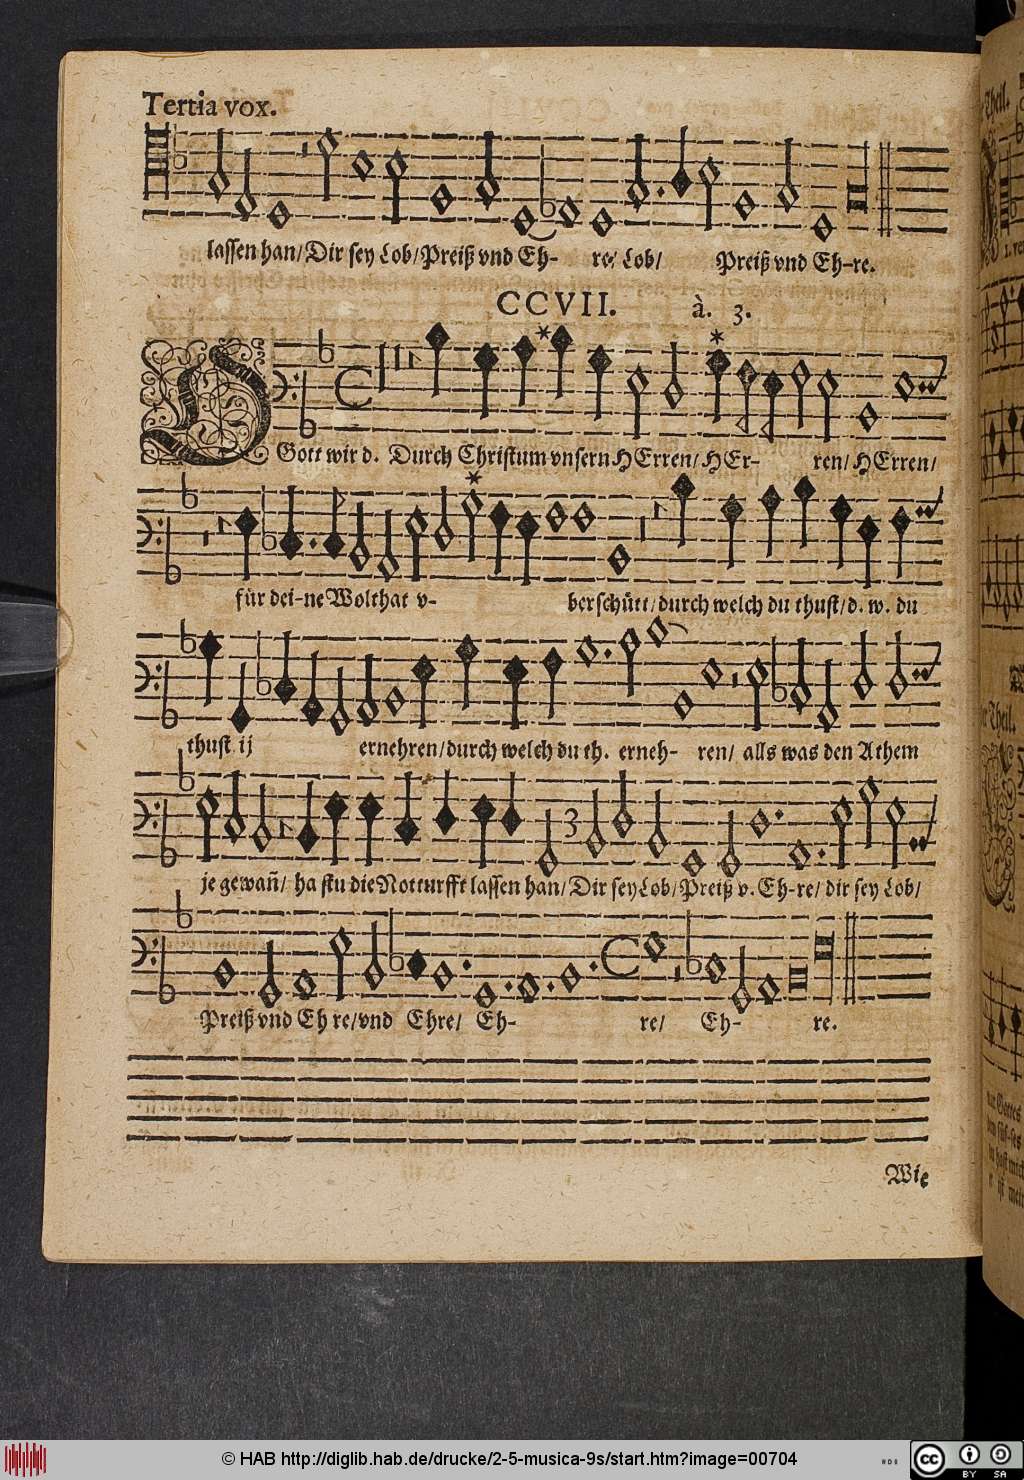 Tertia vox.
lassen han/ Dir sey Lob/ Preiß vnd Eh- re/ Lob/ Preiß vnd Eh-re.
CCVII. à. 3.
Gott wir d. Durch Christum vnsern HErren/ HEr- ren/ HErren/
für dei-ne Wolthat v- berschütt/ durch welch du thust/ d. w. du
thust ij ernehren/ durch welch du th. erneh- ren/ alls was den Athem
je gewañ/ ha stu die Notturfft lassen han/ Dir sey Lob/ Preiß v. Eh-re/ dir sey Lob/
Preiß vnd Eh re/ vnd Ehre/ Eh- re/ Eh- re.
Wie
© HAB http://diglib.hab.de/drucke/2-5-musica-9s/start.htm?image=00704
cc BY SA